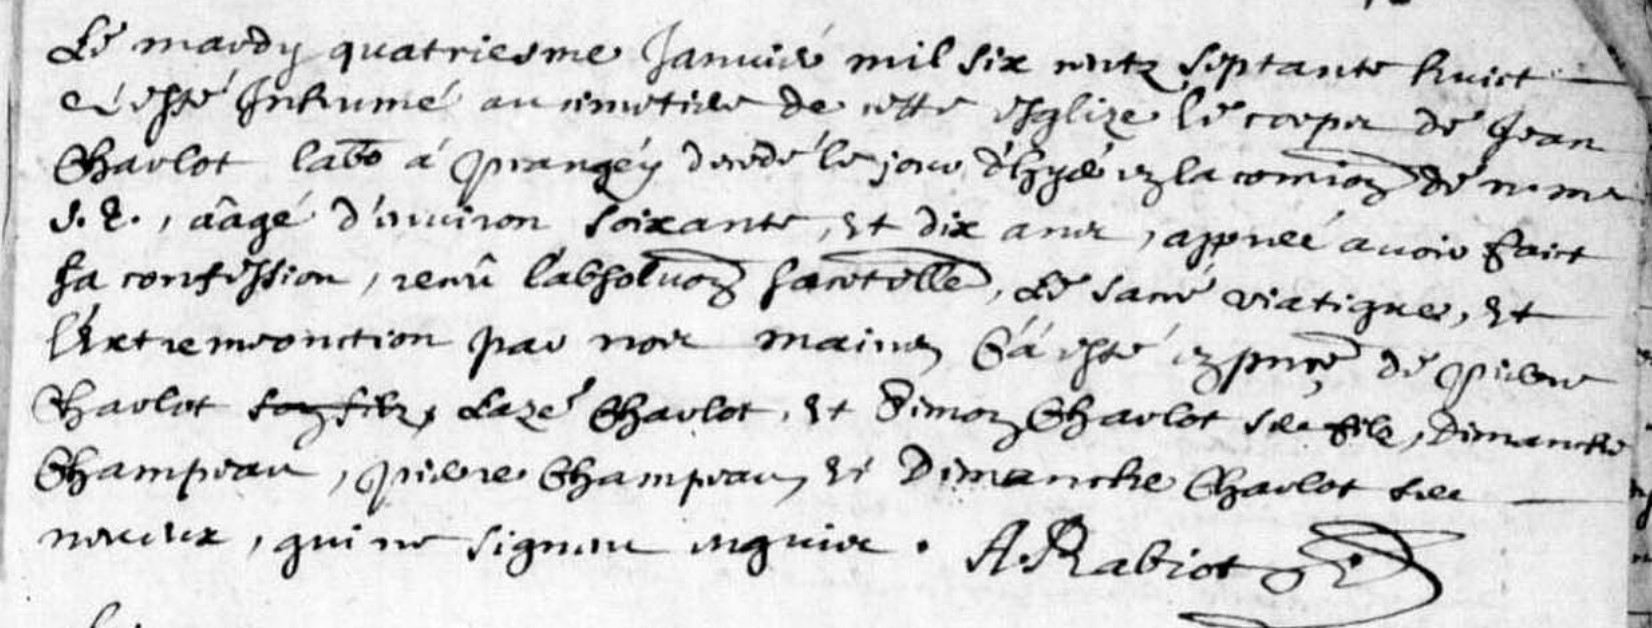 Le mardy quatriesme Janvier mil six centz septante huict
a esté Inhumé au cimetiere de cette esglize le corps de Jean
Charlot labo à Prangey decedé le jour d'hyer en la comion de n. me
S. E., aâgé d'environ soixante, et dix ans, apres avoir faict
sa confession, receu l'absoluon sacrtelle, Le sacré viatique, et
l'extremeonction par nos mains, Ca esté en pnce de Pierre
Charlot son filz, Lazé Charlot, et Simon Charlot ses filz, Dimanche
Champeau, Pierre Champeau, et Dimanche Charlot ses
neveux, qui ne signent enquis. A. Rabiot